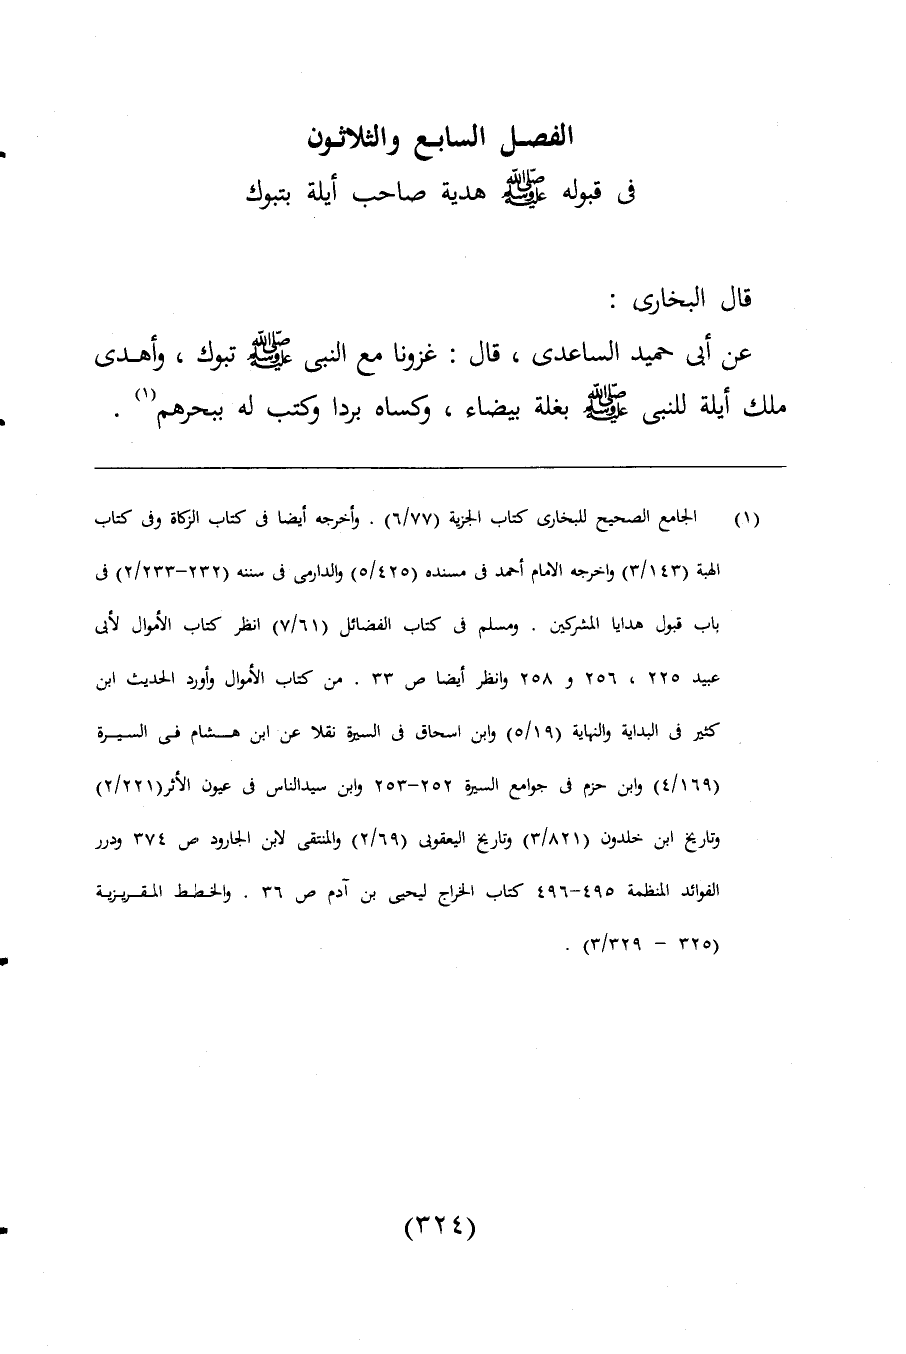 الفصل السابع والثلاثون
فى قبوله ﷺ هدية صاحب أيلة بتبوك
قال البخارى :
عن أبى حميد الساعدى ، قال : غزونا مع النبى ﷺ تبوك ، وأهدى
ملك أيلة للنبى ﷺ بغلة بيضاء ، وكساه بردا وكتب له ببحرهم(١) .
(١) الجامع الصحيح للبخارى كتاب الجزية (٦/٧٧) . وأخرجه أيضا فى كتاب الزكاة وفى كتاب
الهبة (٣/١٤٣) واخرجه الامام أحمد فى مسنده (٥/٤٢٥) والدارمى فى سننه (٢/٢٣٣-٢٣٢) فى
باب قبول هدايا المشركين . ومسلم فى كتاب الفضائل (٧/٦١) انظر كتاب الأموال لأبى
عبيد ٢٢٥ ، ٢٥٦ و ٢٥٨ وانظر أيضا ص ٣٣ . من كتاب الأموال وأورد الحديث ابن
كثير فى البداية والنهاية (٥/١٩) وابن اسحاق فى السيرة نقلا عن ابن هشام فى السيرة
(٤/١٦٩) وابن حزم فى جوامع السيرة ٢٥٢-٢٥٣ وابن سيدالناس فى عيون الأثر(٢/٢٢١)
وتاريخ ابن خلدون (٣/٨٢١) وتاريخ اليعقوبى (٢/٦٩) والمنتقى لابن الجارود ص ٣٧٤ ودرر
الفوائد المنظمة ٤٩٥-٤٩٦ كتاب الخراج ليحيى بن آدم ص ٣٦ . والخطط المقريزية
(٣٢٥ - ٣/٣٢٩) .
(٣٢٤)